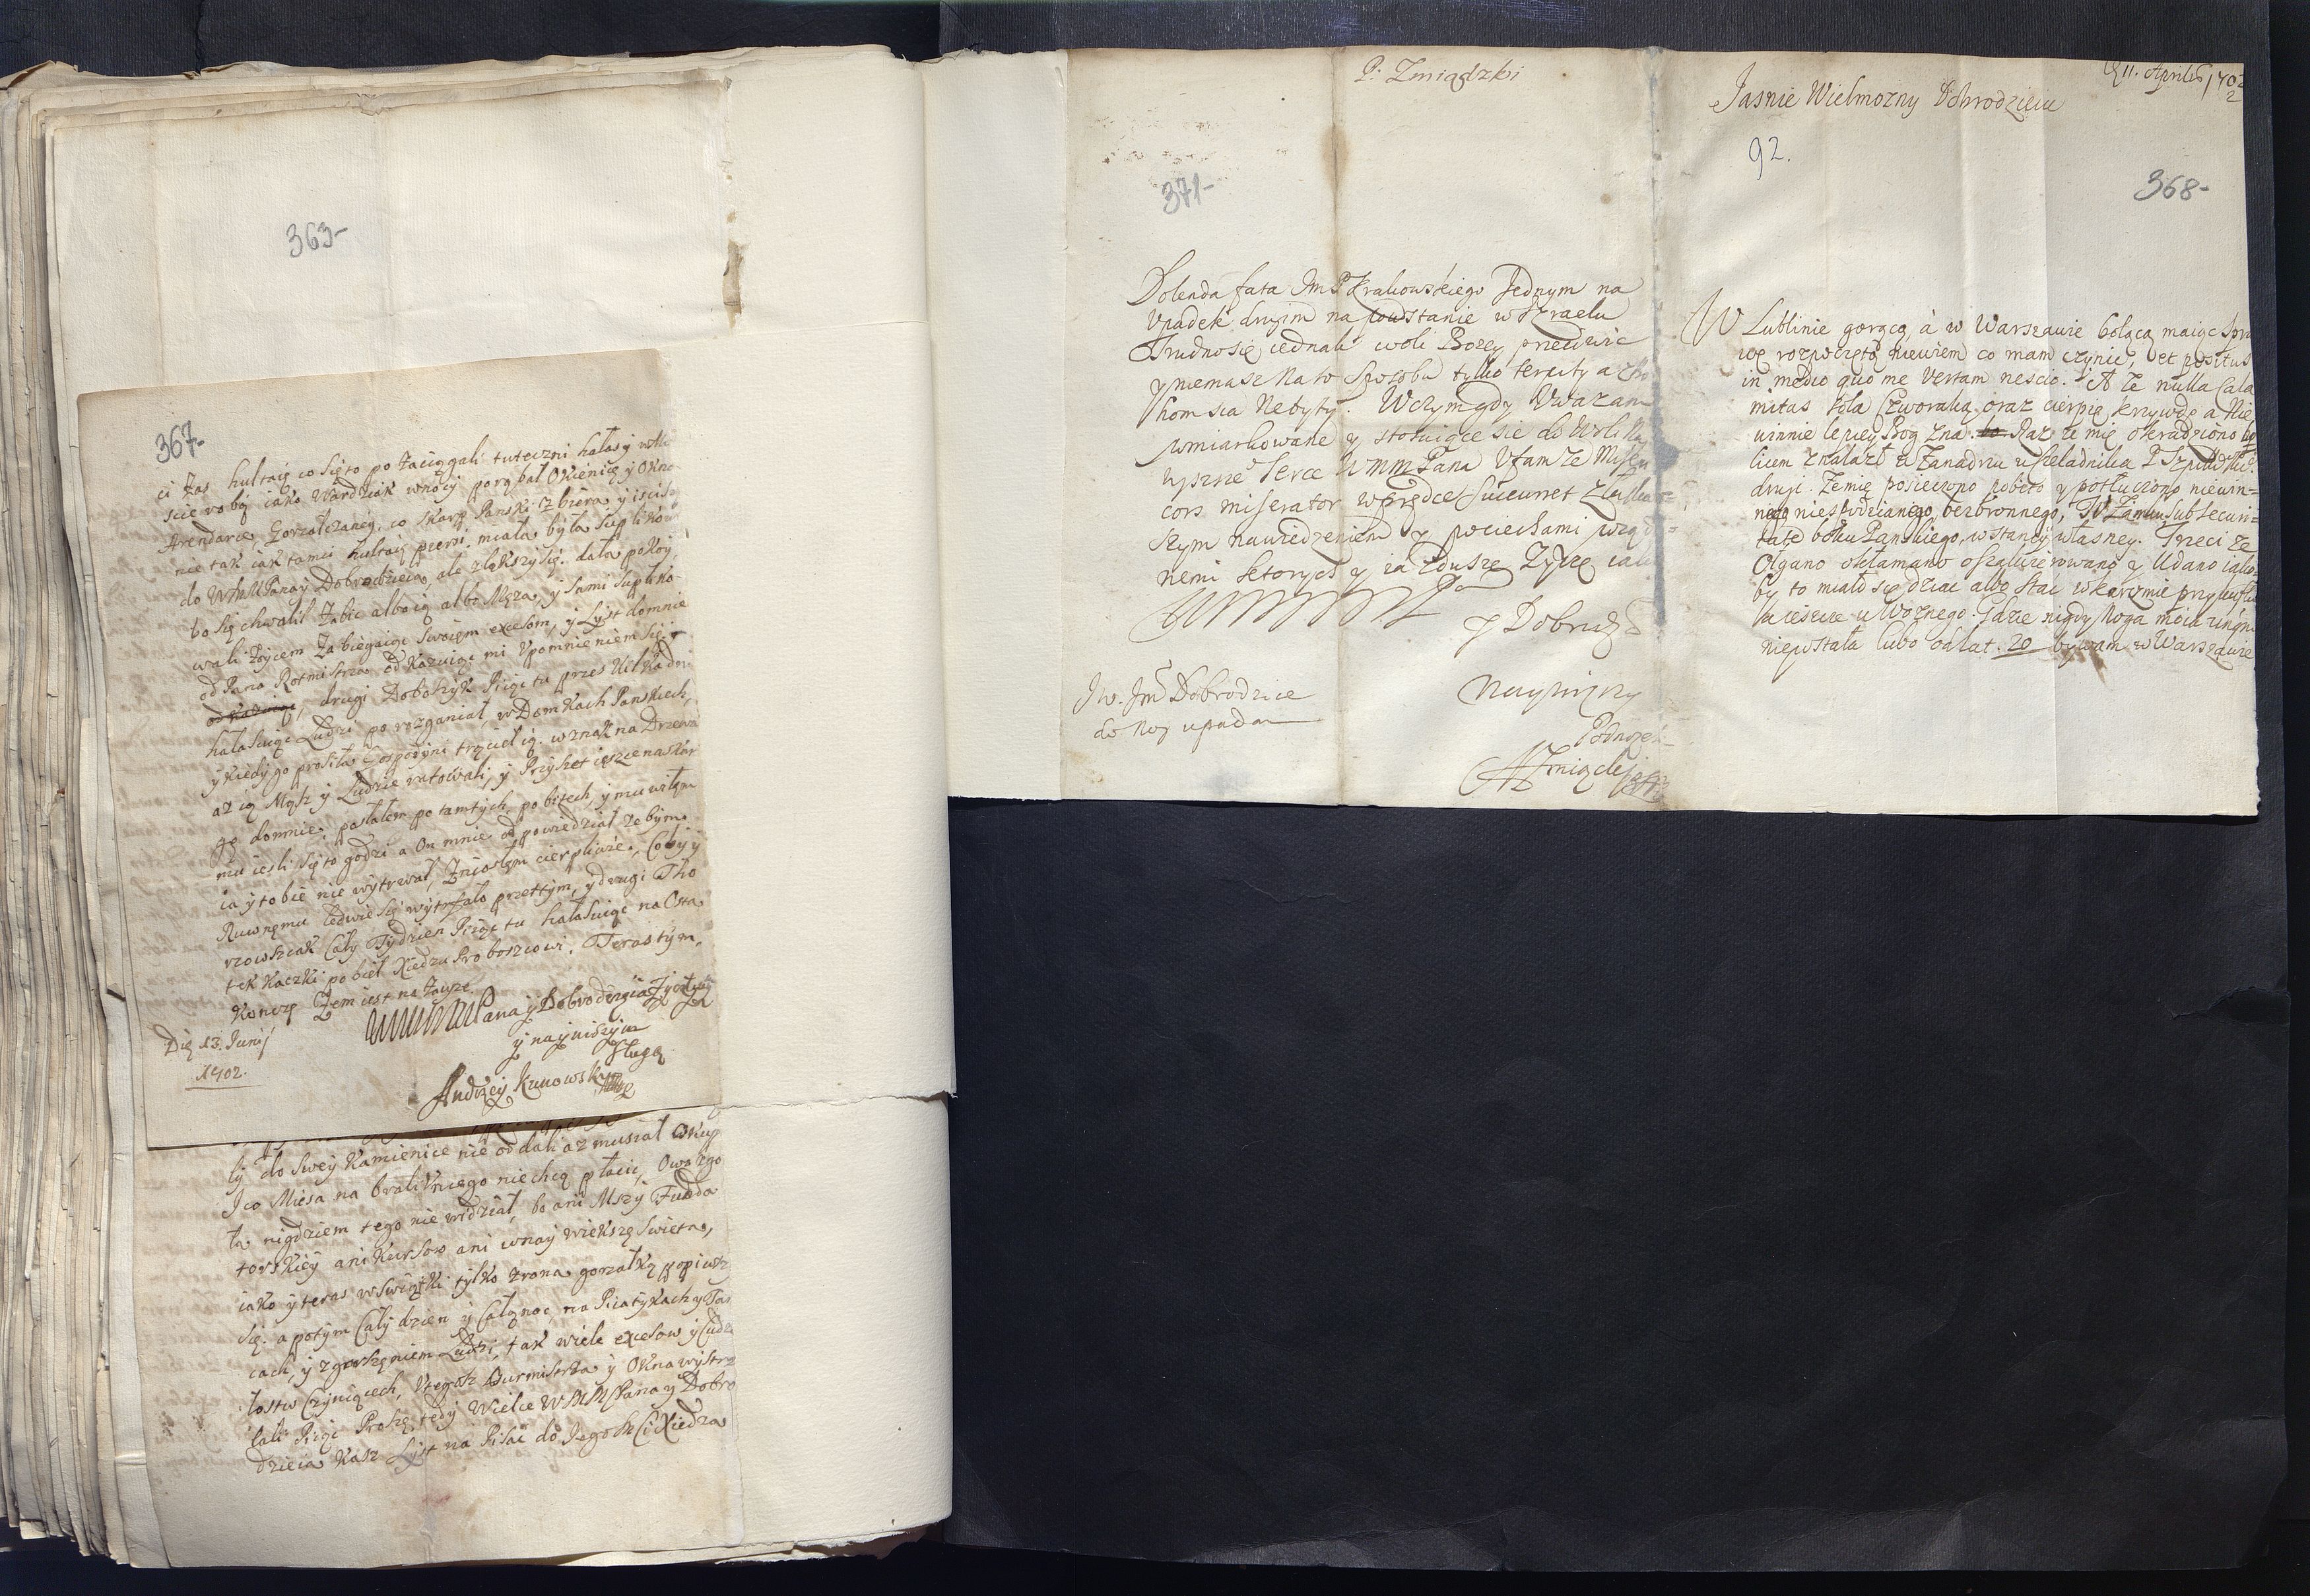 363-
367-
ci zas hultaie co się to po zaciągali tuteczni hałasy
scie robią iako Wardziak wnocy porąbał Okienicę y Okno
Arendarce Gorzałczaney, co skarg Panski zbiera y iscie
nie tak iak tamci hultaie pierśi miała była suplikow
do WMMPana y Dobrodzieia, ale zląkszy się dała pokoy,
bo się chwalił zabic albo ią albo Męza, y sami supliko-
wali Zyciem Zabiegaiąc swoiem excesom, y Lyst domnie
od Pana Rotmistrza od Kazuiąc mi Upomnieniem się
drugi Doboszyk Piiąc tu przes Kilka dni
hałasuiąc Ludzi po rozganiał w Domkach Panskiech,
y kiedy go prosiła Gospodyni trącieł ią wznak na Drzewa
az ią Mąsz y Ludzie ratowali, y Przyszet iescze na skar
gę domnie, posłałem po tamtych po bitech y mu
mu iesli się to godzi a On mnie odpowiedział ze bym
ia y tobie nie wytrwał, Zniosłem cierpliwie, Coby y
Ruwnemu ledwie się wytrfało przettym, y drugi Tho
rzowsciak Cały Tydzien Piiąc tu hałasuiąc na Osta
tek Kaczki pobieł Xiedzu Proboszczowi, Teras tym
Koncze Zem iest na Zawsze
WMMMPana y Dobrodzieia Zyczliwy
y naynizszym
sługą
Andrzey Kunowski
Die 13. Junÿ
1702.
ly do Swey Kamienice nie oddali az musiał Okup
I co Miesa na brali Uniego nie chcą płacic, Owo zgo
ła nigdziem tego nie widział, bo ani Mszy Funda
torskiey ani Kursow ani wnay wieksze Swieta,
iako y teras w Swiątki tylko zrana gorzałką popiwszy
Się a potym Cały dzien y Całą noc, na Piatykach y Tan
cach, y zgorszeniem Ludzi, tak wiele excesow y Cudz
łostw Czyniącech, Utegosz Burmistrza y Okna wystrz
lali Piiąc Proszę tedy Wielce WMMPana y Dobro
dzieia Kasz Lyst na Pisac do Jegomści Xiedza
P. Zmigdzki
371-
Dolenda fata JmP Krakowskiego Jednym na
Vpadek drugim na powstanie w Izraelu
Trudno się iednak woli Bozey przeciwic
y niemasz na to Sposobu tylko terpity a
hom sia nebyty. Wczym gdy Uwazam
umiarkowane y stosuiące sie do Woli Nay
wyszsze Serce WMMPana Ufam ze Miseri
cors miserator wprędce succurret z łaska
szym nawiedzeniem y pociechami pożąda=
nemi ktorych y ia z dusze Zyczę iako
WMMMPa
y Dobrdz
Jw. Jm Dobrodzice
do Nog upadam
Nayniższy
Podnożek
368-
11. Aprilis 1702
2
Jasnie Wielmozny Dobrodzieiu
92.
W Lublinie gorącą, à w Warszawie bolącą maiąc Spra
wę rozpoczętą niewiem co mam czynic, et positus
in medio quo me vertam nescio. A ze nulla Cala
mitas sola Czworaką oraz cierpię krzywdę a Nie
winnie lepiey Bog Zna. Raz ze mię okradziono
licem znalazł w Zanadrzu u Czeladnika
drugi. Zemię posieczono pobito y potłuczono niewin=
nego niespodzianego, bezbronnego, W Zamku Sub Securi=
tate boku Panskiego, w stancyi własney. Trzeci ze
Ołgano okłamano oszalwierowano y Udano iako
by to miało się dziac albo stac w karczmie przy
u Woznego. Gdzie nigdy Noga moia
niepostała lubo od lat. 20 bywam w Warszawie